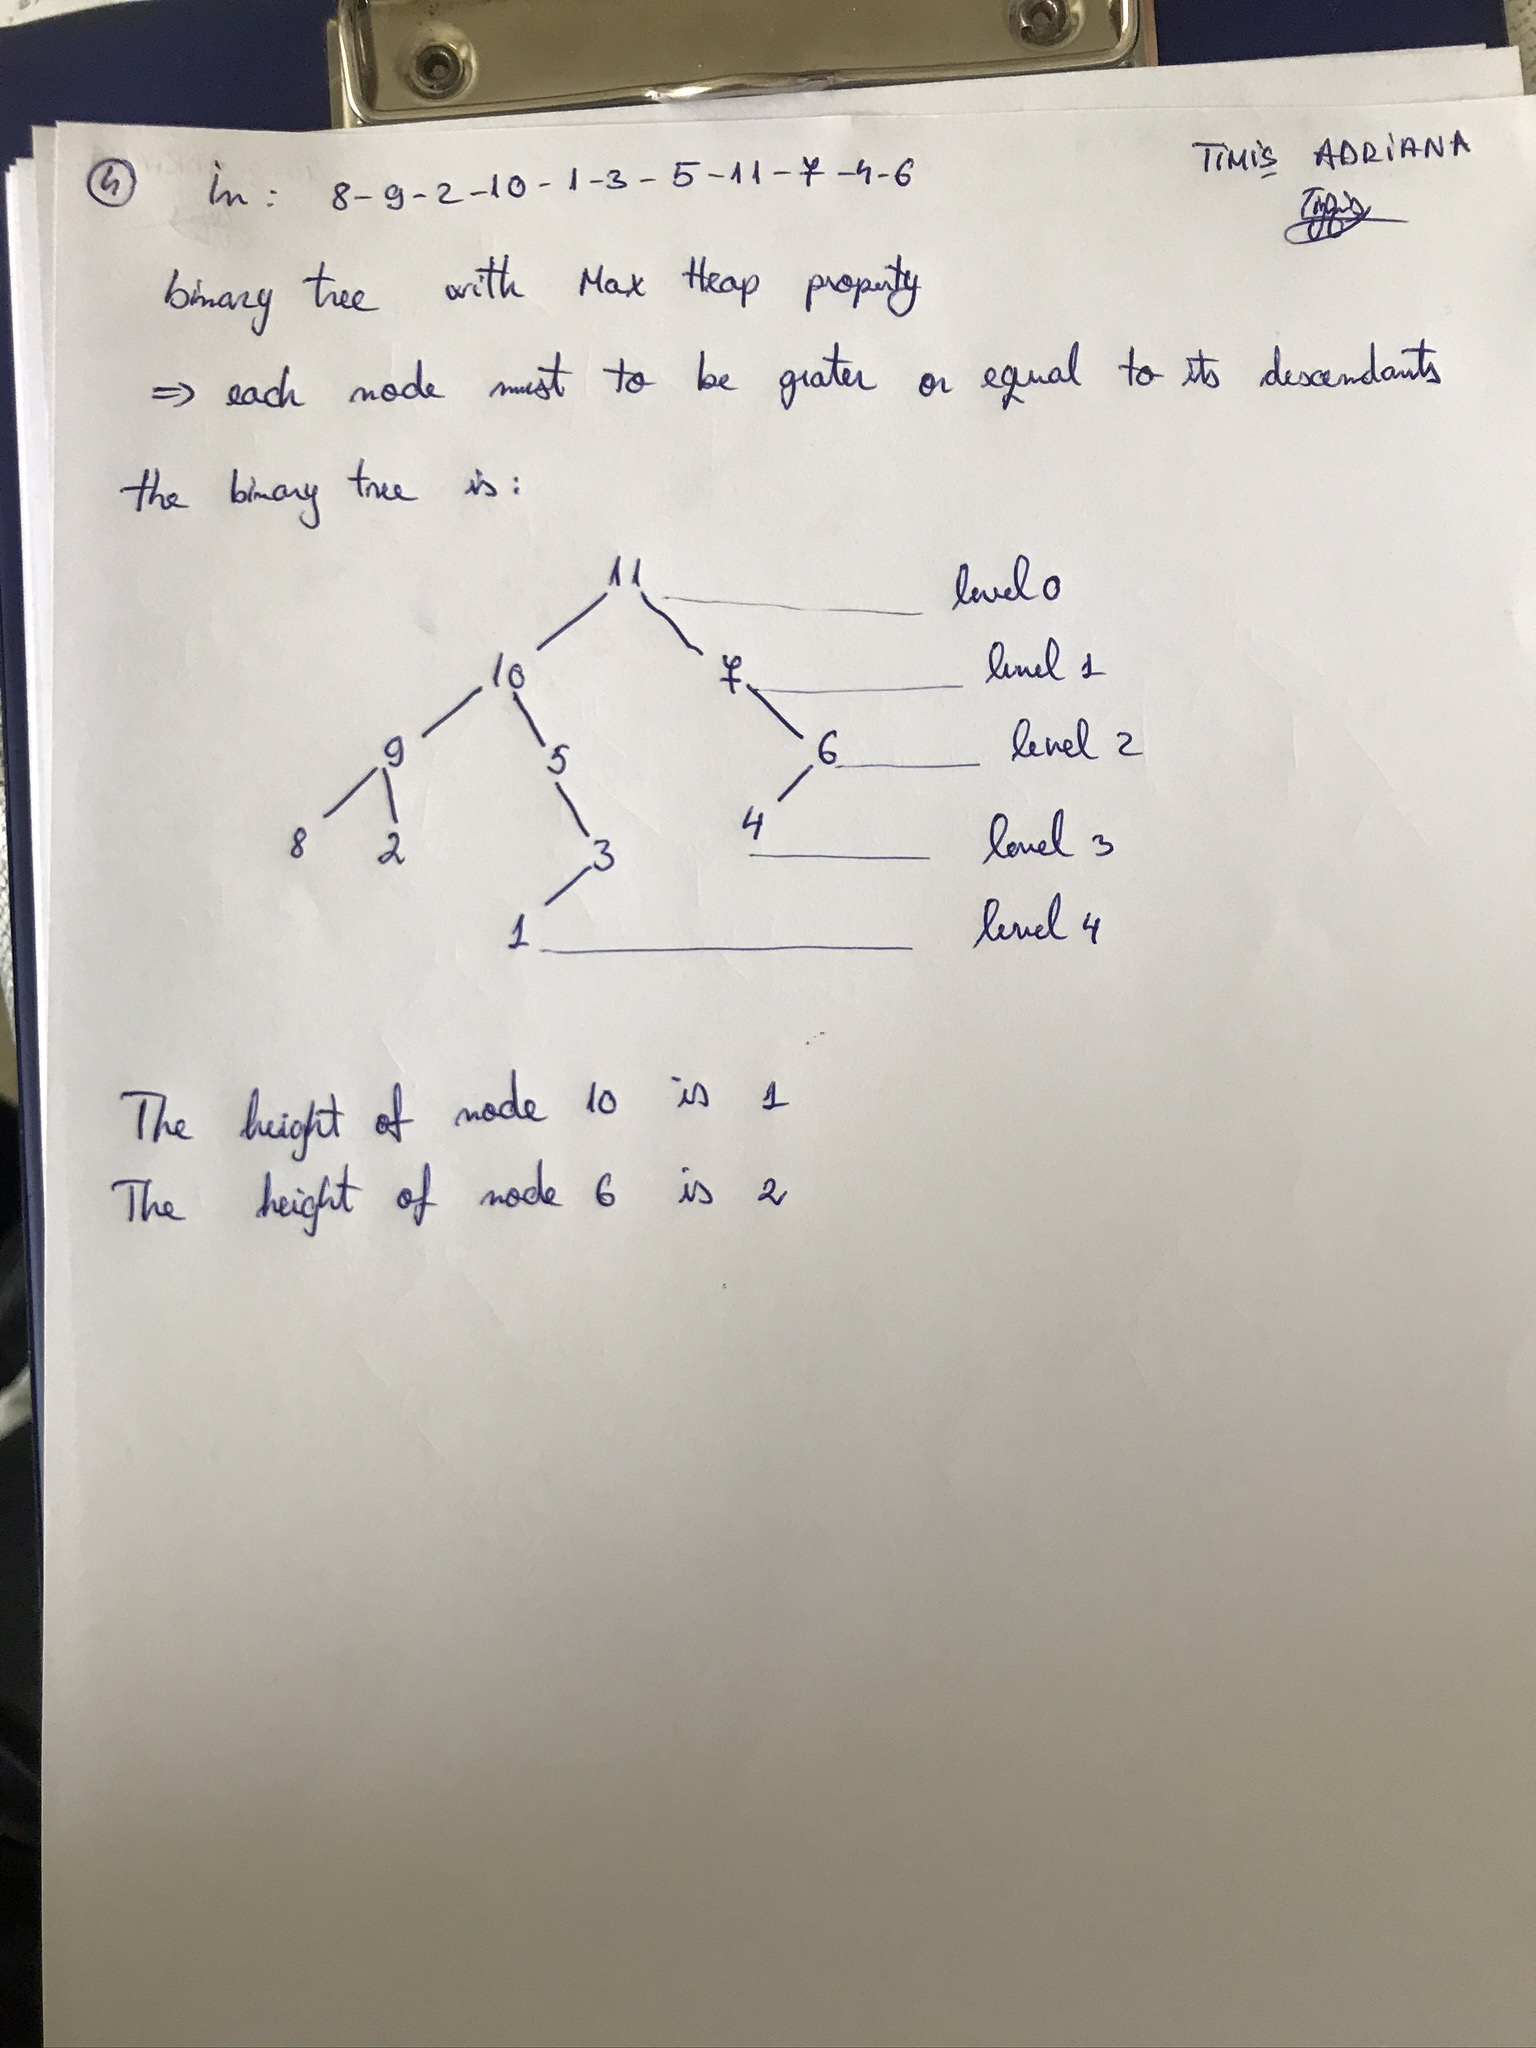 4 in: 8-9-2-10-1-3-5-11-7-4-6
TIMIȘ ADRIANA
binary tree with Max Heap property
=> each node must to be grater or equal to its descendants
the binary tree is:
11 level 0
10 7 level 1
9 5 6 level 2
8 2 3 4 level 3
1 level 4
The height of node 10 is 1
The height of node 6 is 2